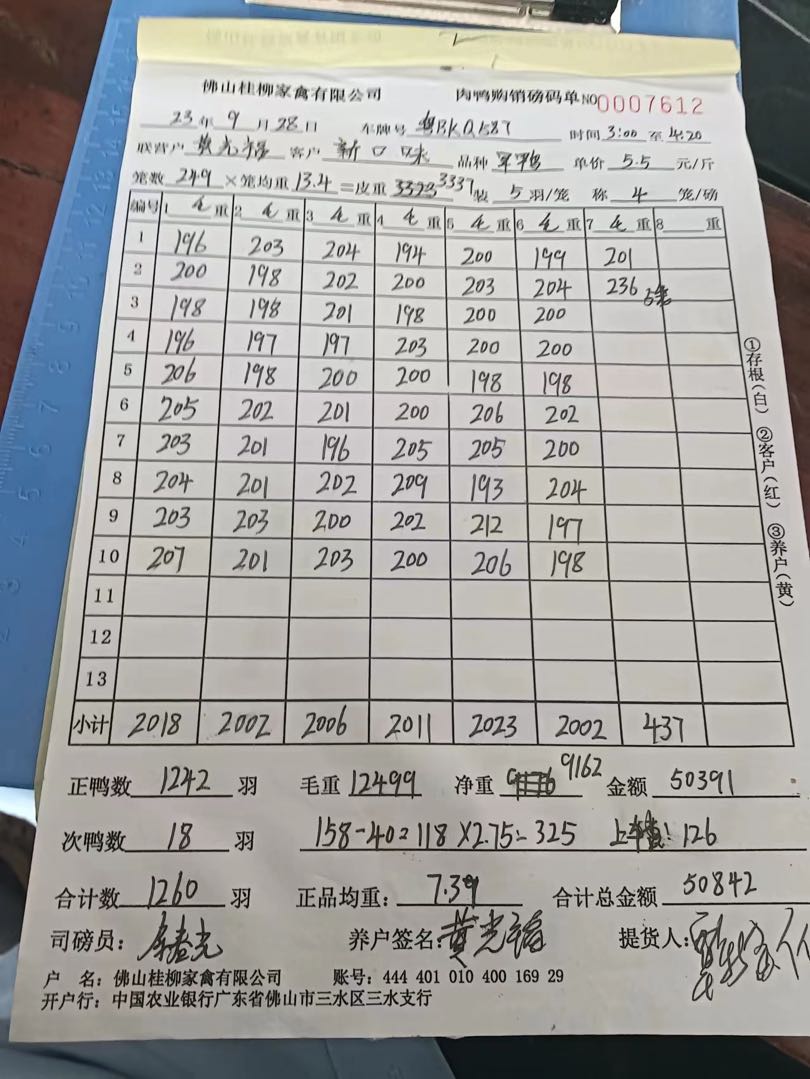 佛山桂柳家禽有限公司 肉鸭购销磅码单 NO 0007612
23年9月28日 车牌号 粤BKQ587 时间 3:00 至 4:20
联营户 黄光 客户 新口味 品种 单价 5.5 元/斤
笼数 249 × 笼均重 13.4 = 皮重 3337 装 5 羽/笼 称 4 笼/磅
编号 1 毛重 2 毛重 3 毛重 4 毛重 5 毛重 6 毛重 7 毛重 8 重
1 196 203 204 194 200 199 201
2 200 198 202 200 203 204 236
3 198 198 201 198 200 200
4 196 197 197 203 200 200
5 206 198 200 200 198 198
6 205 202 201 200 206 202
7 203 201 196 205 205 200
8 204 201 202 209 193 204
9 203 203 200 202 212 197
10 207 201 203 200 206 198
11
12
13
小计 2018 2002 2006 2011 2023 2002 437
正鸭数 1242 羽 毛重 12499 净重 9162 金额 50391
次鸭数 18 羽 158-40=118×2.75=325 上车 126
合计数 1260 羽 正品均重: 7.39 合计总金额 50842
司磅员: 养户签名: 黄光 提货人:
户 名: 佛山桂柳家禽有限公司 账号: 444 401 010 400 169 29
开户行: 中国农业银行广东省佛山市三水区三水支行
①存根(白) ②客户(红) ③养户(黄)